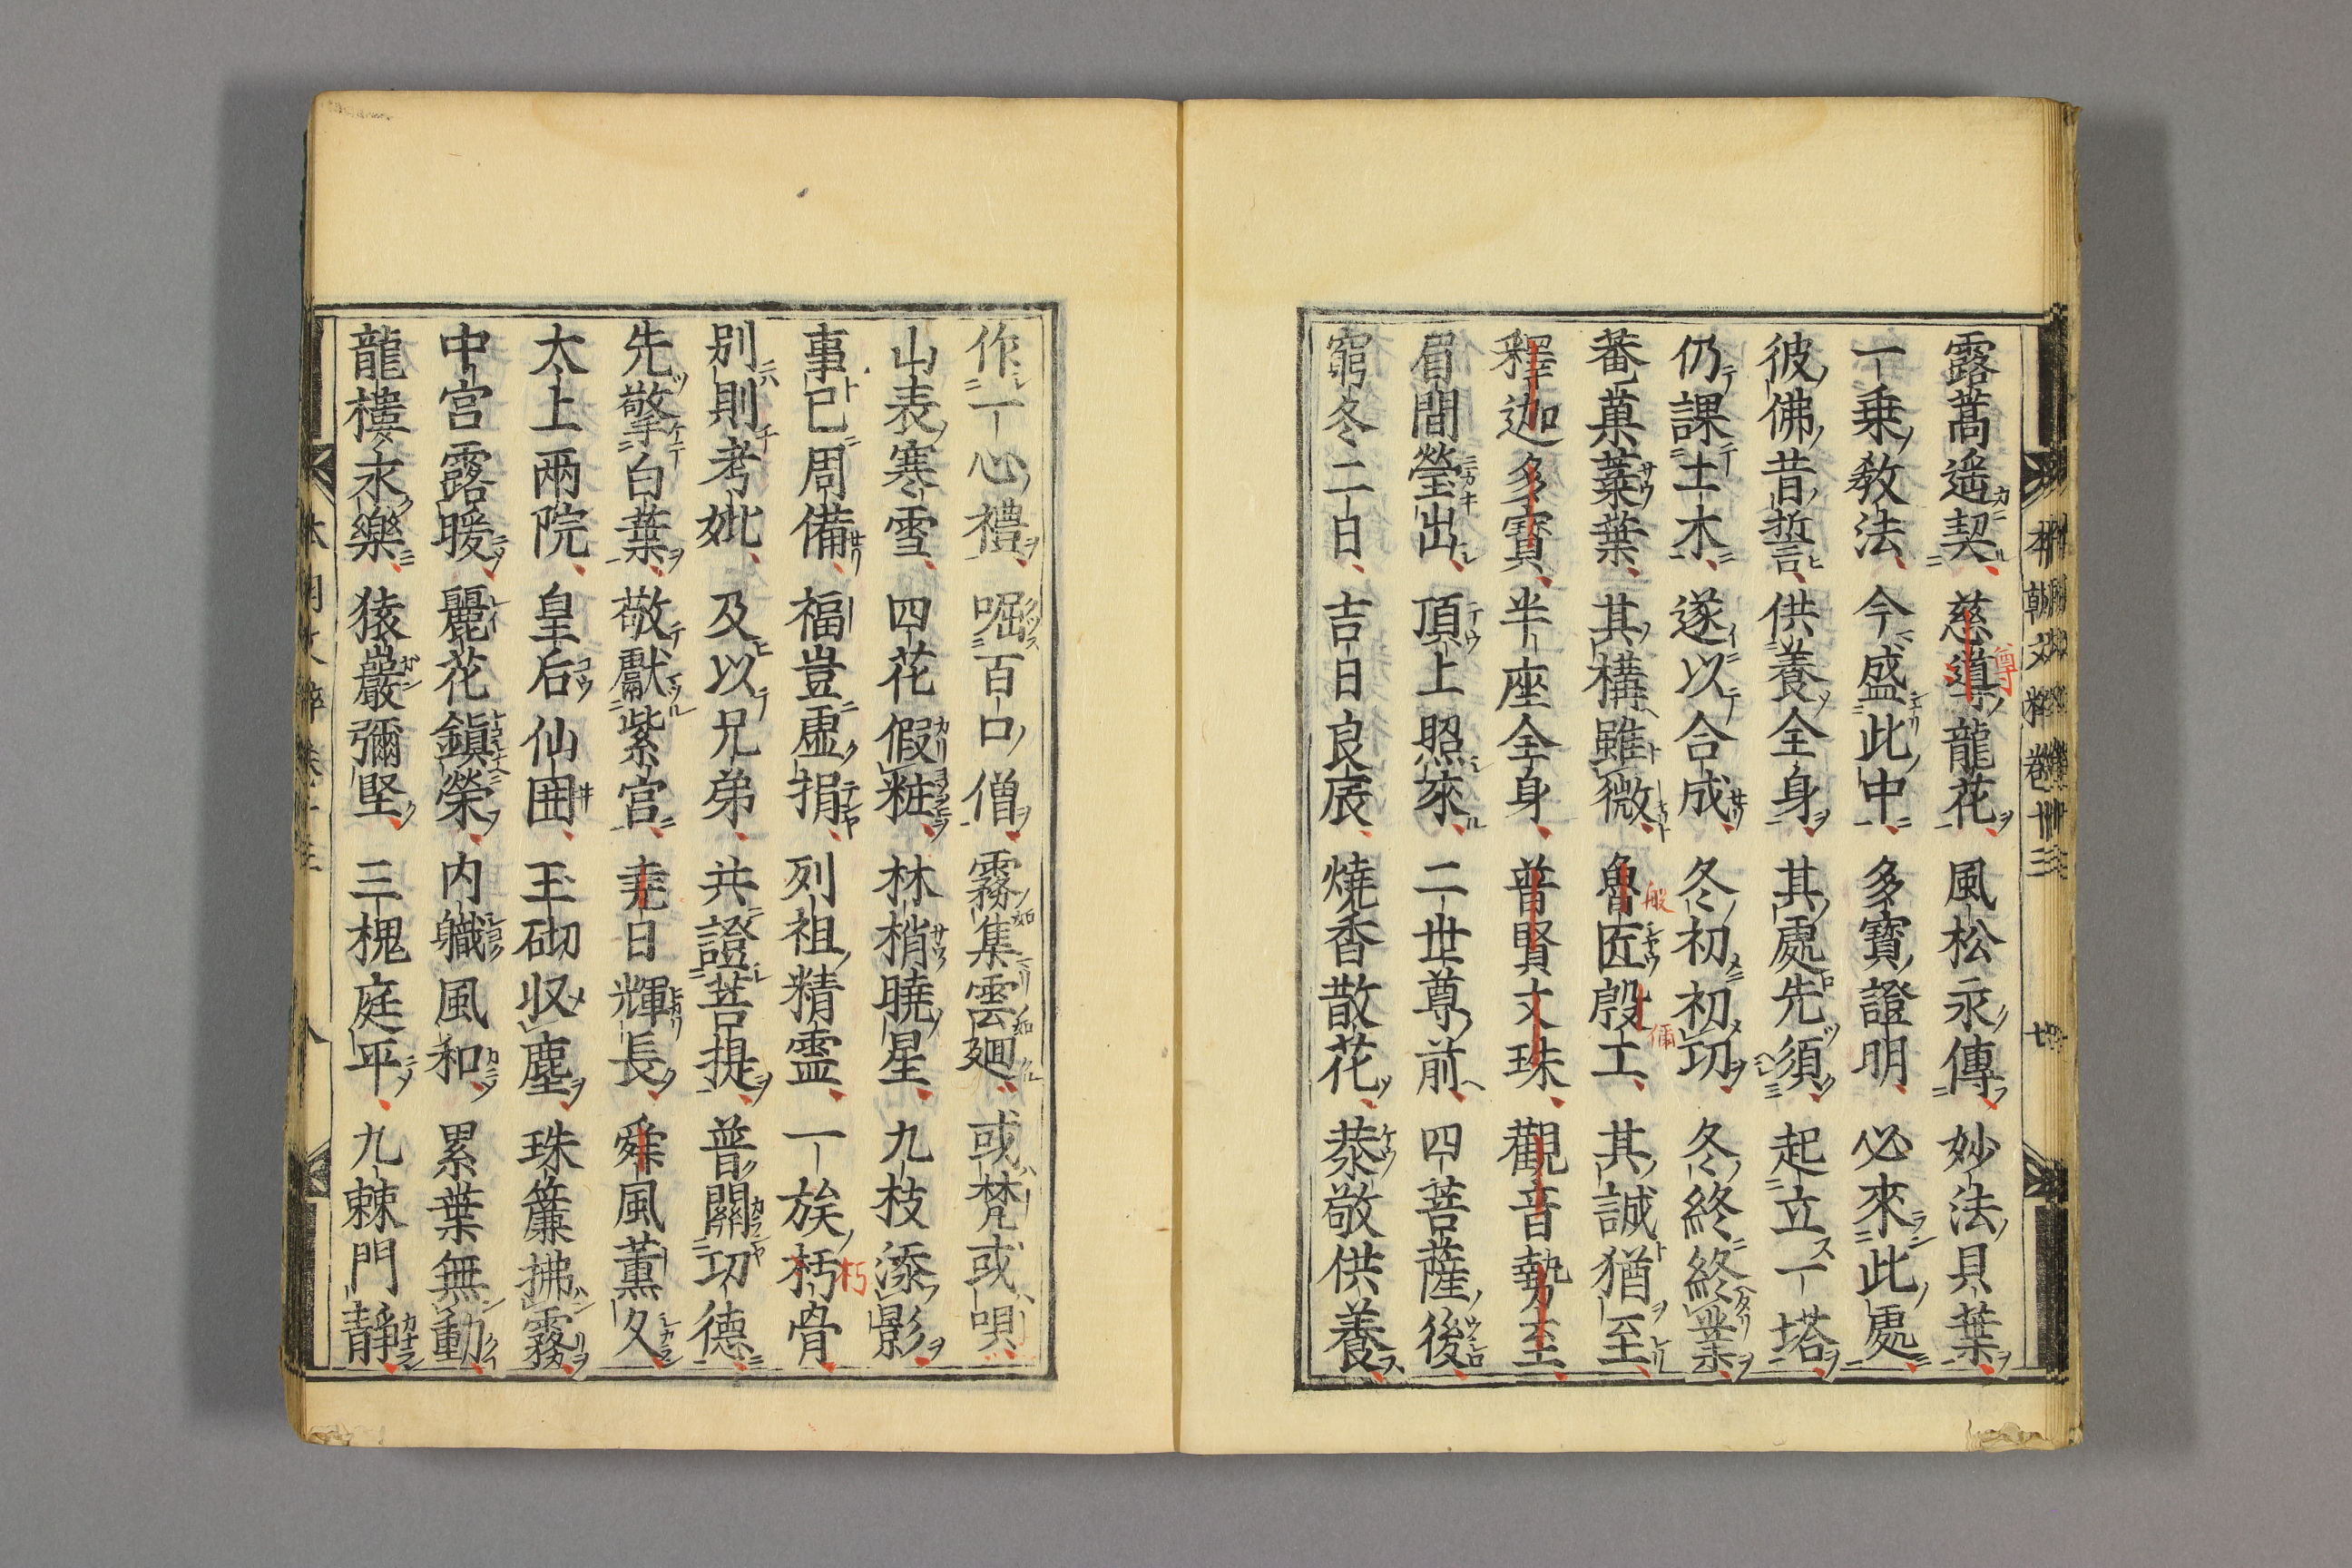 露蒿遥契慈導龍花風松永傳妙法貝葉
一乗教法今盛此中多寳證明必來此處
彼佛昔誓供養全身其處先須起立一塔
仍課土木遂以合成冬初初切冬終終業
蕃菓菜葉其構雖微魯匠殷工其誠猶至
釋迦多寳半座全身普賢文珠觀音勢至
眉間瑩出頂上照來二世尊前四菩薩後
窮冬二日吉日良辰燒香散花恭敬供養
作一心禮啒百口僧霧集雲廻或梵或唄
山表寒雪四花假粧林梢曉星九枝添影
事已周備福豈虚捐列祖精霊一族朽骨
別則考妣及以兄弟共證菩提普關切德
先擎白葉敬獻紫宮尭日輝長舜風薫久
太上兩院皇后仙囲玉砌収塵珠簾拂霧
中宮露暖麗花鎭榮内職風和累葉無動
龍樓永樂猿巖彌堅三槐庭平九棘門靜